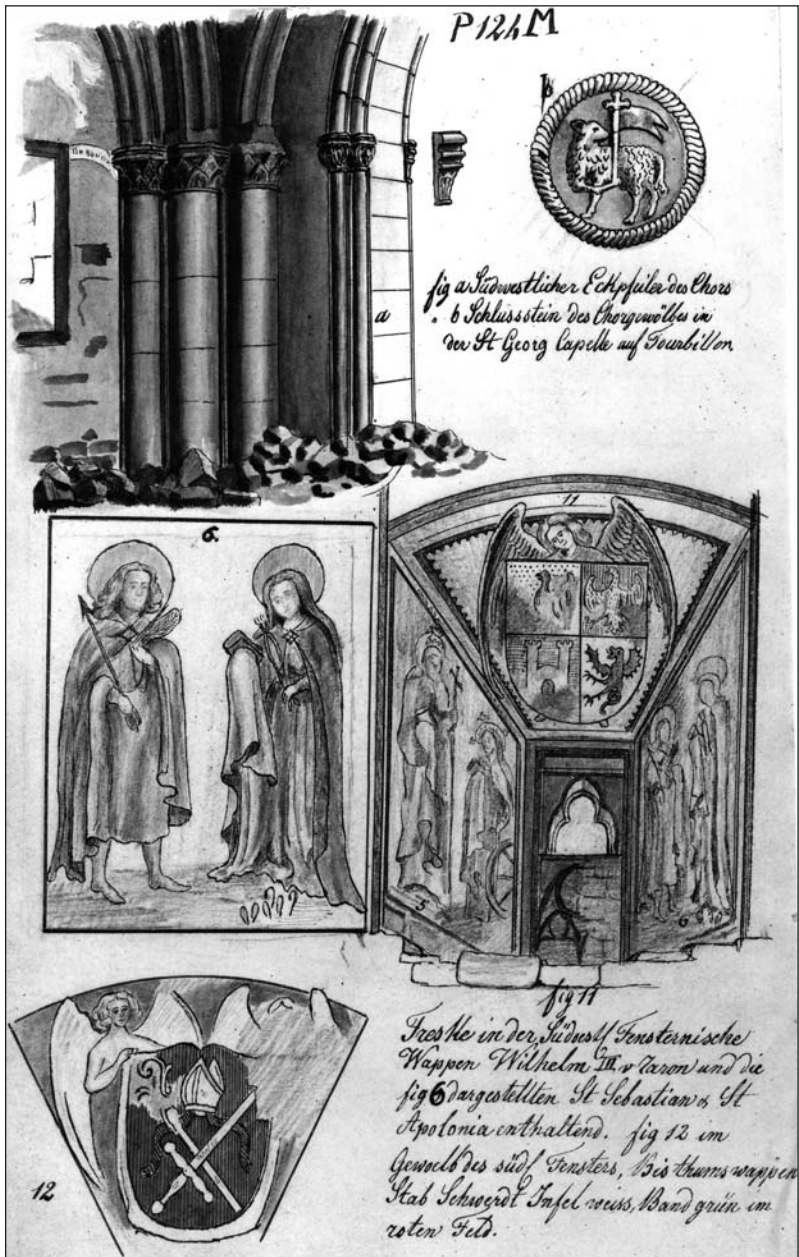 P124M
b
fig a Südwestlicher Eckpfeiler des Chors
" b Schlussstein des Chorgewölbes in
der St Georg Capelle auf Tourbillon
a
6.
11
5
6
fig 11
Freske in der Südöstl Fensternische
Wappen Wilhelm III v Raron und die
fig 6 dargestellten St Sebastian & St
Apolonia enthaltend. fig 12 im
Gewoelb des südl Fensters, Bisthumswappen
Stab Schwerdt Infel weiss, Band grün im
roten Feld.
12